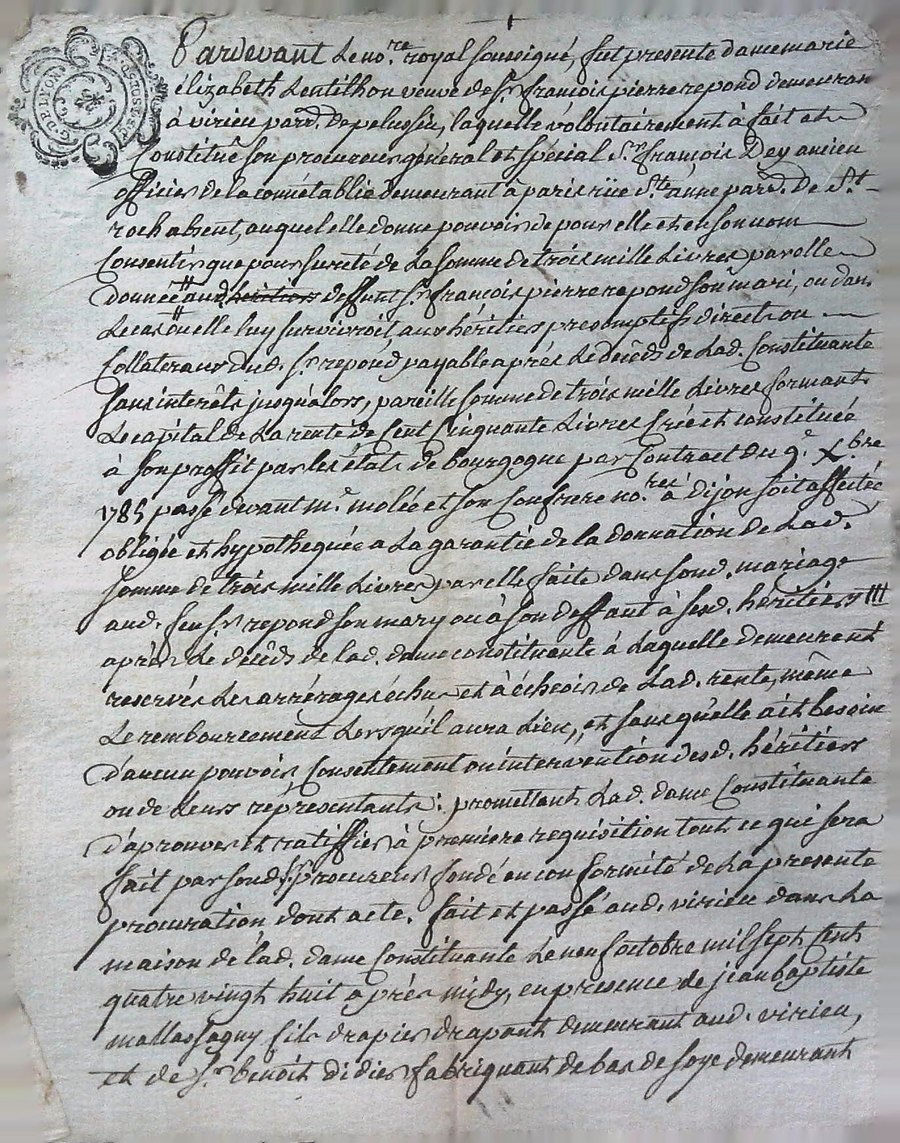 G. DE LYON
Pardevant Le no.re royal soussigné, fut presente dame marie
élizabeth Lentilhon veuve de Sr. françois pierre repond demeurant
à virieu parr. de pelussin, laquelle volontairement à fait et
Constitué son procureur général et spécial Sr. françois Dey ancien
officier de la connétablie demeurant à paris rüe Ste. anne parr. de St.
roch absent, auquel elle donne pouvoir de pour elle et en son nom
Consentir que pour sureté de La somme de trois mille Livres par elle
donnée aud. héritiers deffunt Sr. françois pierre repond son mari, ou dans
Le cas ou elle luy survivroit, aux héritiers presomptifs direct ou
Collateraux dud. Sr. repond payable après Le decèds de Lad. Constituante
sans interêts jusqu'alors, pareille somme de trois mille Livres formant
Le capital de La rente de Cent Cinquante Livres Créé et constituée
à son proffit par les états de bourgogne par Contract du 9e. Xbre
1785 passé devant me. molée et son Confrere no.res à Dijon soit affectée
obligée et hypothequée a La garantie de la donnation de Lad.
somme de trois mille Livres par elle faite dans sond. mariage
aud. feu Sr. repond son mary ou à son deffaut à sesd. héritiers
après Le decèds de Lad. dame constituante à Laquelle demeurent
reservés Les arrérages échus et à échoir de Lad. rente, même
Le remboursement Lorsqu'il aura Lieu, et sans qu'elle ait besoin
d'aucun pouvoir Consentement ou intervention desd. héritiers
ou de Leurs représentants: promettant Lad. dame Constituante
d'aprouver et ratiffier à première requisition tout ce qui sera
fait par sond. Sr. procureur fondé en conformité de La presente
procuration dont acte. fait et passé aud. virieu dans La
maison de Lad. dame Constituante Le neuf octobre mil sept Cent
quatre vingt huit après midy, en presence de jean baptiste
fils drapier drapant demeurant aud. virieu,
et de Sr. benoit didier fabriquant de bas de soye demeurant